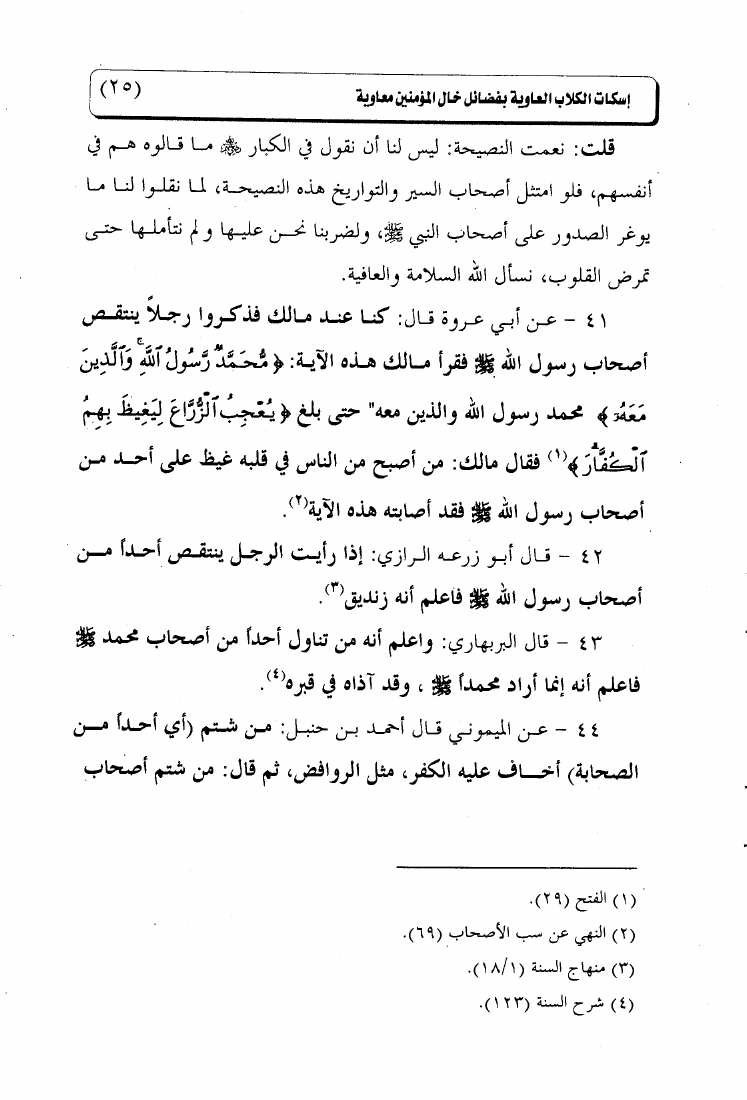 إسكات الكلاب العاوية بفضائل خال المؤمنين معاوية (٢٥)
قلت: نعمت النصيحة: ليس لنا أن نقول في الكبار ﷺ ما قالوه هم في
أنفسهم، فلو امتثل أصحاب السير والتواريخ هذه النصيحة، لما نقلوا لنا ما
يوغر الصدور على أصحاب النبي ﷺ، ولضربنا نحن عليها ولم نتأملها حتى
تمرض القلوب، نسأل الله السلامة والعافية.
٤١ – عن أبي عروة قال: كنا عند مالك فذكروا رجلاً ينتقص
أصحاب رسول الله ﷺ فقرأ مالك هذه الآية: ﴿مُّحَمَّدٌ رَّسُولُ ٱللَّهِ ۚ وَٱلَّذِينَ
مَعَهُۥٓ﴾ محمد رسول الله والذين معه" حتى بلغ ﴿يُعْجِبُ ٱلزُّرَّاعَ لِيَغِيظَ بِهِمُ
ٱلْكُفَّارَ ۗ﴾(١) فقال مالك: من أصبح من الناس في قلبه غيظ على أحد من
أصحاب رسول الله ﷺ فقد أصابته هذه الآية(٢).
٤٢ – قال أبو زرعه الرازي: إذا رأيت الرجل ينتقص أحداً من
أصحاب رسول الله ﷺ فاعلم أنه زنديق(٣).
٤٣ – قال البربهاري: واعلم أنه من تناول أحداً من أصحاب محمد ﷺ
فاعلم أنه إنما أراد محمداً ﷺ ، وقد آذاه في قبره(٤).
٤٤ – عن الميموني قال أحمد بن حنبل: من شتم (أي أحداً من
الصحابة) أخاف عليه الكفر، مثل الروافض، ثم قال: من شتم أصحاب
(١) الفتح (٢٩).
(٢) النهي عن سب الأصحاب (٦٩).
(٣) منهاج السنة (١٨/١).
(٤) شرح السنة (١٢٣).